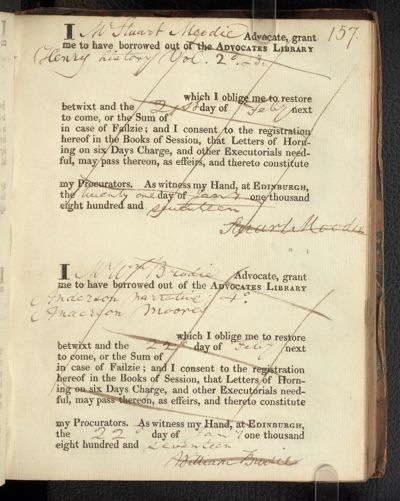 157.
I Mr Stuart Moodie Advocate, grant
me to have borrowed out of the ADVOCATES LIBRARY
Henry history Vol. 2d.
which I oblige me to restore
betwixt and the 21st day of Feby next
to come, or the Sum of
in case of Failzie; and I consent to the registration
hereof in the Books of Session, that Letters of Horn-
ing on six Days Charge, and other Executorials need-
ful, may pass thereon, as effeirs, and thereto constitute
my Procurators. As witness my Hand, at EDINBURGH,
the twenty one day of Jany one thousand
eight hundred and seventeen
Stuart Moodie
I Mr Wm Brodie Advocate, grant
me to have borrowed out of the ADVOCATES LIBRARY
Anderson narrative 4o.
Anacreon Moore
which I oblige me to restore
betwixt and the 22d day of Feby next
to come, or the Sum of
in case of Failzie; and I consent to the registration
hereof in the Books of Session, that Letters of Horn-
ing on six Days Charge, and other Executorials need-
ful, may pass thereon, as effeirs, and thereto constitute
my Procurators. As witness my Hand, at EDINBURGH,
the 22d day of Jany one thousand
eight hundred and seventeen
William Brodie